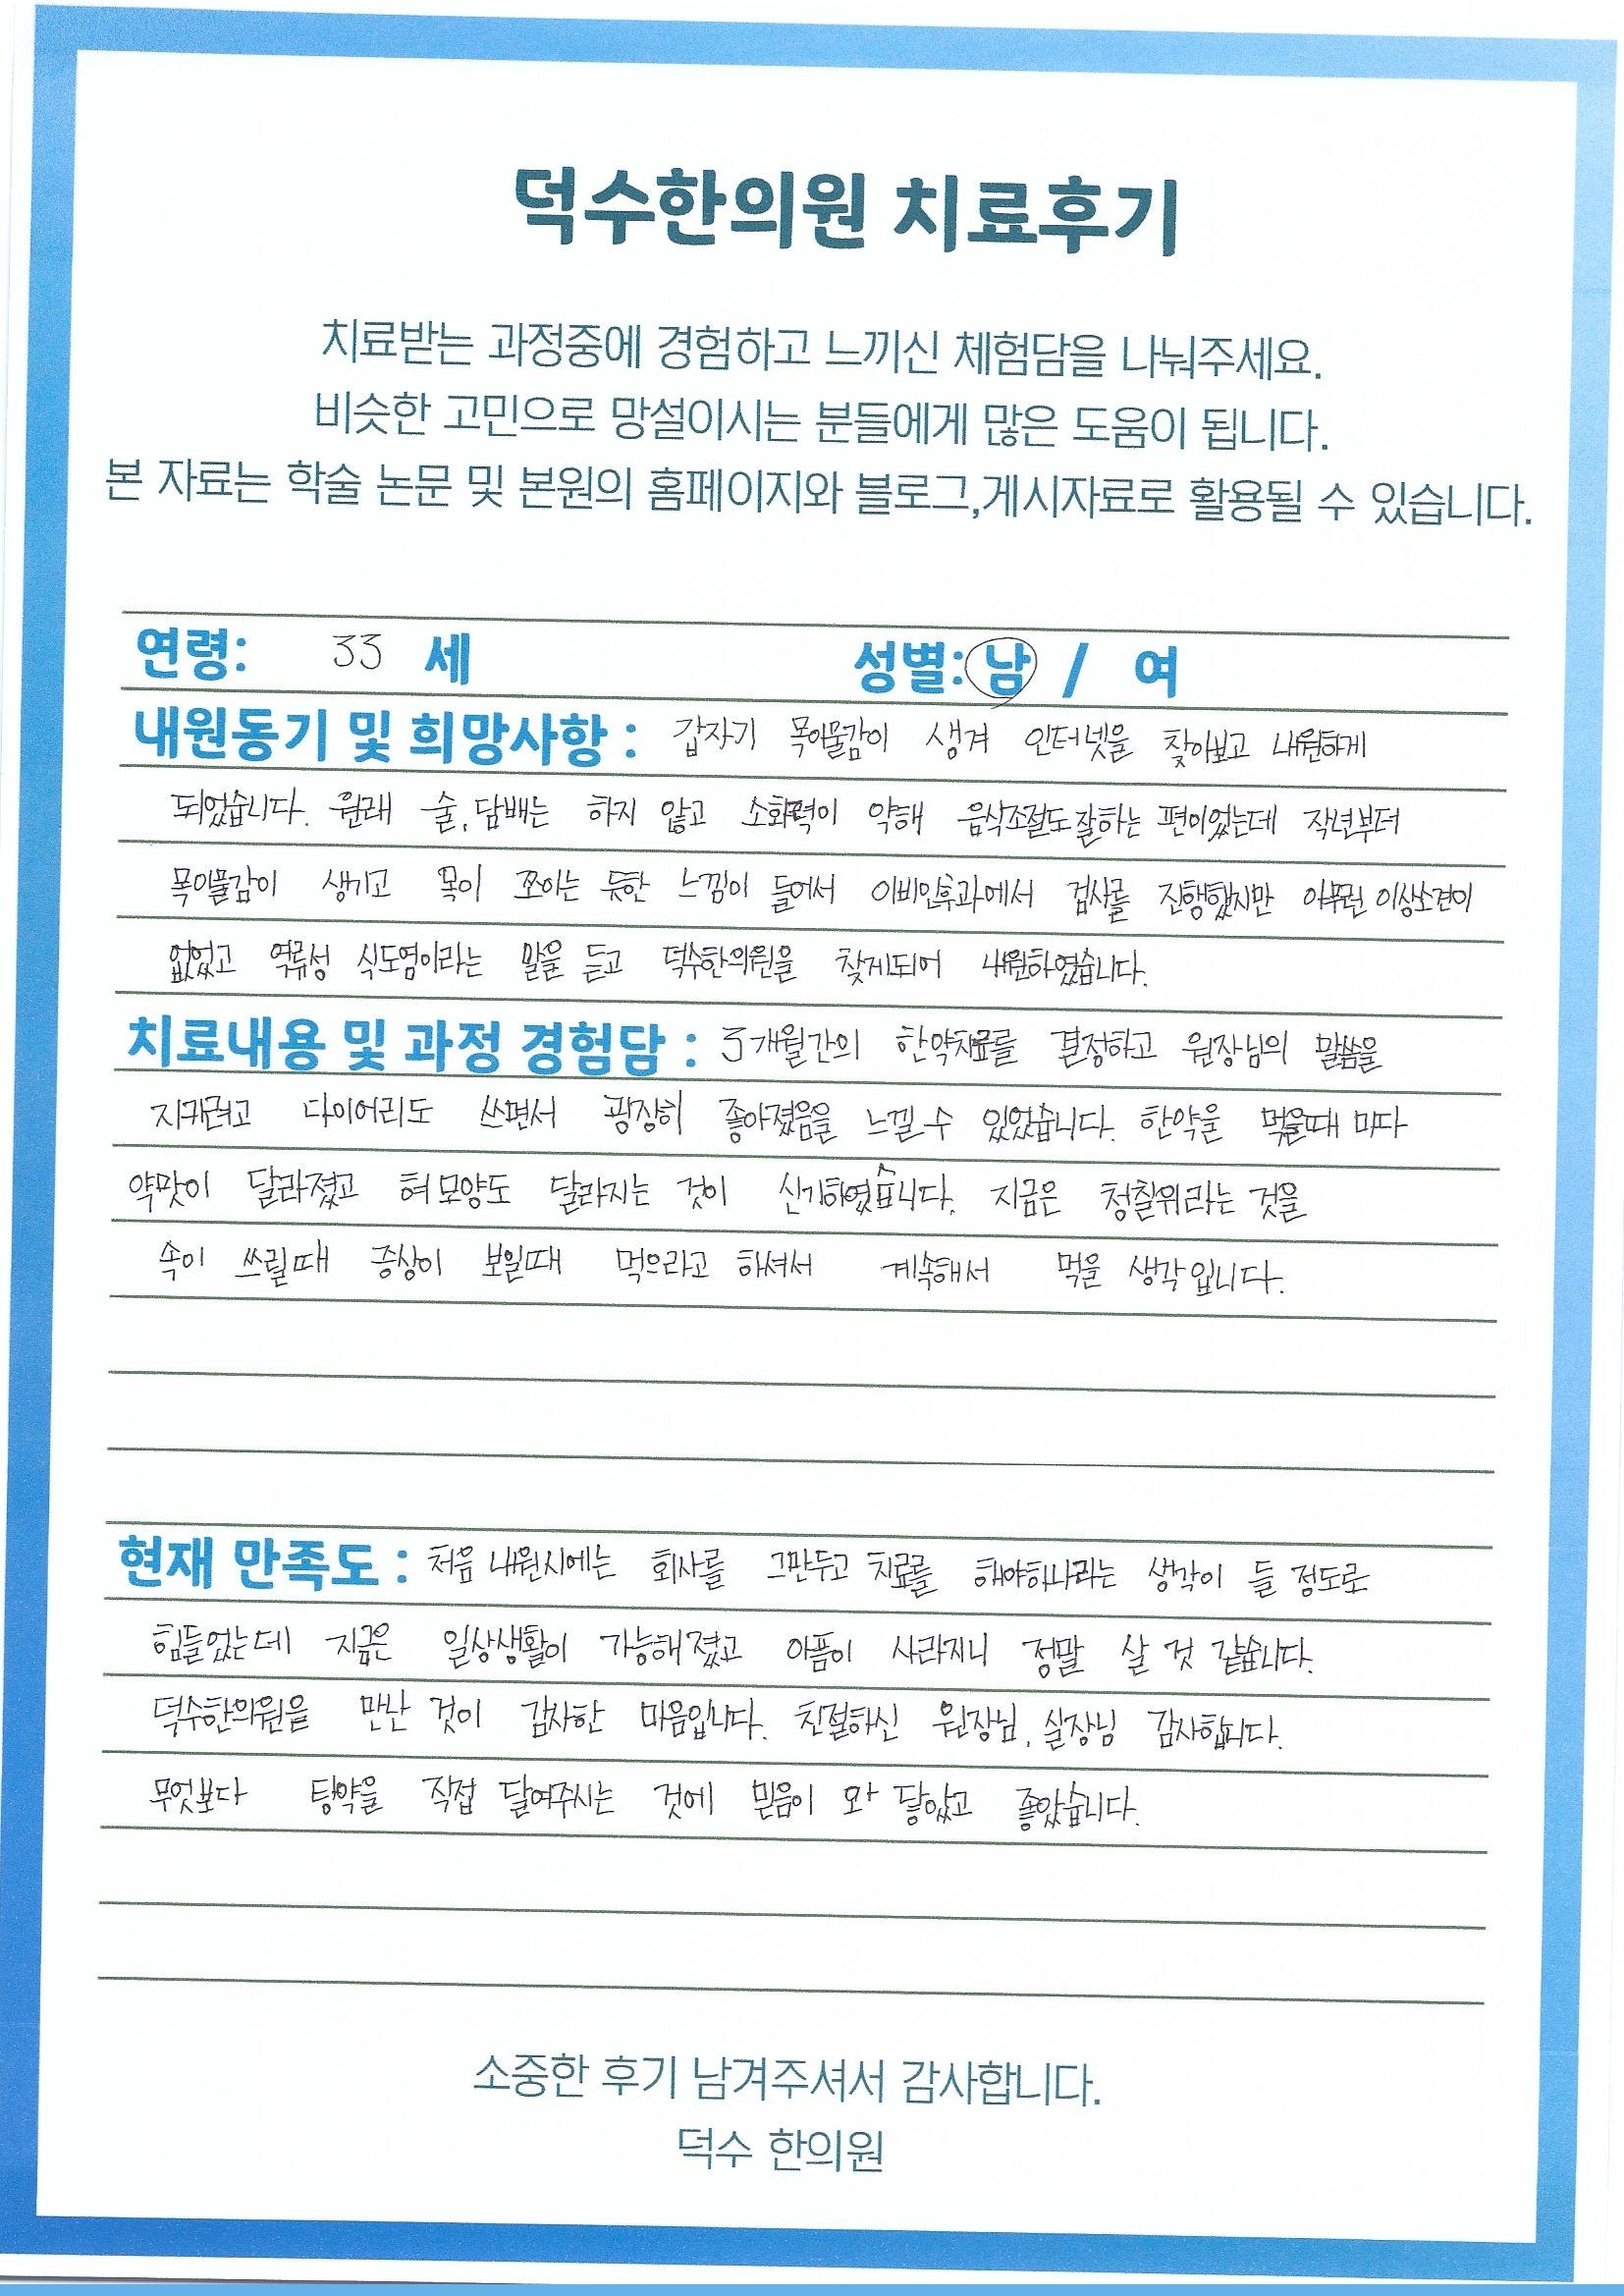 덕수한의원 치료후기
치료받는 과정중에 경험하고 느끼신 체험담을 나눠주세요.
비슷한 고민으로 망설이시는 분들에게 많은 도움이 됩니다.
본 자료는 학술 논문 및 본원의 홈페이지와 블로그,게시자료로 활용될 수 있습니다.
연령: 33 세 성별: 남 / 여
내원동기 및 희망사항 : 갑자기 목이물감이 생겨 인터넷을 찾아보고 내원하게
되었습니다. 원래 술, 담배는 하지 않고 소화력이 약해 음식조절도 잘하는 편이었는데 작년부터
목이물감이 생기고 목이 쪼이는 듯한 느낌이 들어서 이비인후과에서 검사를 진행했지만 아무런 이상소견이
없었고 역류성 식도염이라는 말을 듣고 덕수한의원을 찾게되어 내원하였습니다.
치료내용 및 과정 경험담 : 3개월간의 한약치료를 결정하고 원장님의 말씀을
지키려고 다이어리도 쓰면서 굉장히 좋아졌음을 느낄 수 있었습니다. 한약을 먹을때 마다
약맛이 달라졌고 혀 모양도 달라지는 것이 신기하였습니다. 지금은 청칠위라는 것을
속이 쓰릴때 증상이 보일때 먹으라고 하셔서 계속해서 먹을 생각입니다.
현재 만족도 : 처음 내원시에는 회사를 그만두고 치료를 해야하나라는 생각이 들 정도로
힘들었는데 지금은 일상생활이 가능해졌고 아픔이 사라지니 정말 살 것 같습니다.
덕수한의원을 만난 것이 감사한 마음입니다. 친절하신 원장님, 실장님 감사합니다.
무엇보다 탕약을 직접 달여주시는 것에 믿음이 와 닿았고 좋았습니다.
소중한 후기 남겨주셔서 감사합니다.
덕수 한의원